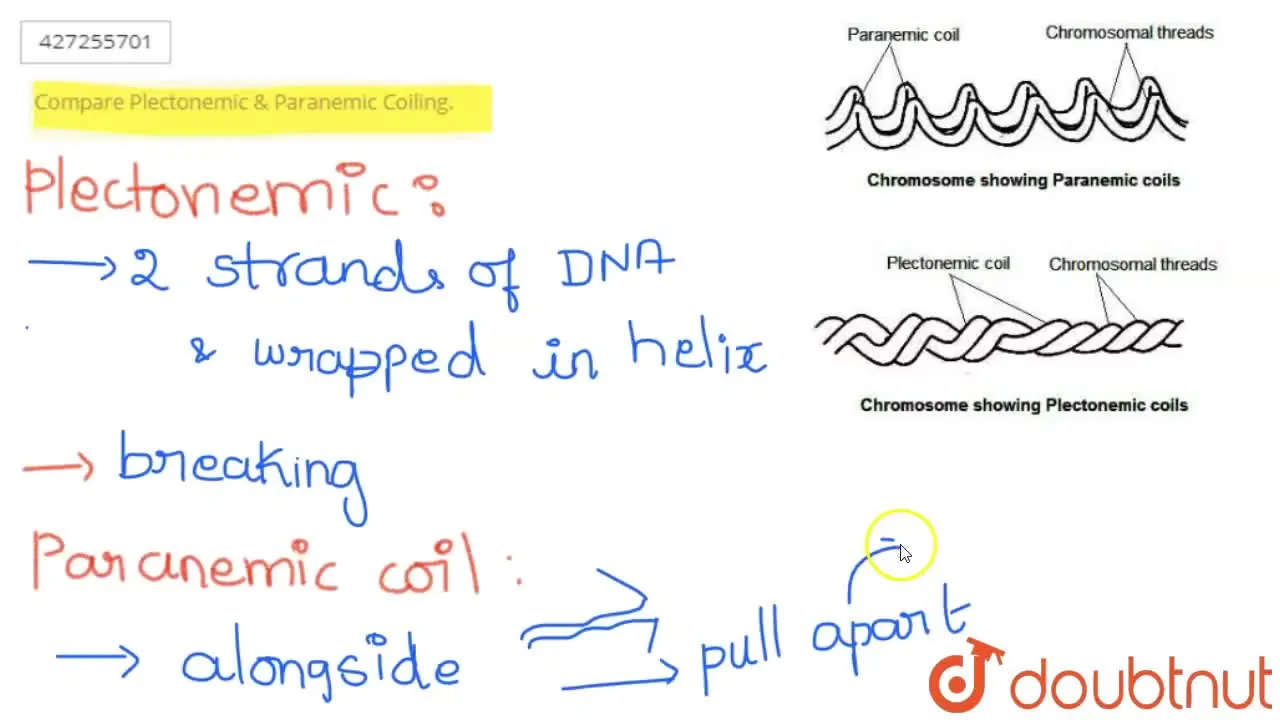 427255701
Compare Plectonemic & Paranemic Coiling.
Plectonemic :
→ 2 strands of DNA
& wrapped in helix
→ breaking
Paranemic coil :
→ alongside
→ pull apart
Paranemic coil
Chromosomal threads
Chromosome showing Paranemic coils
Plectonemic coil
Chromosomal threads
Chromosome showing Plectonemic coils
doubtnut